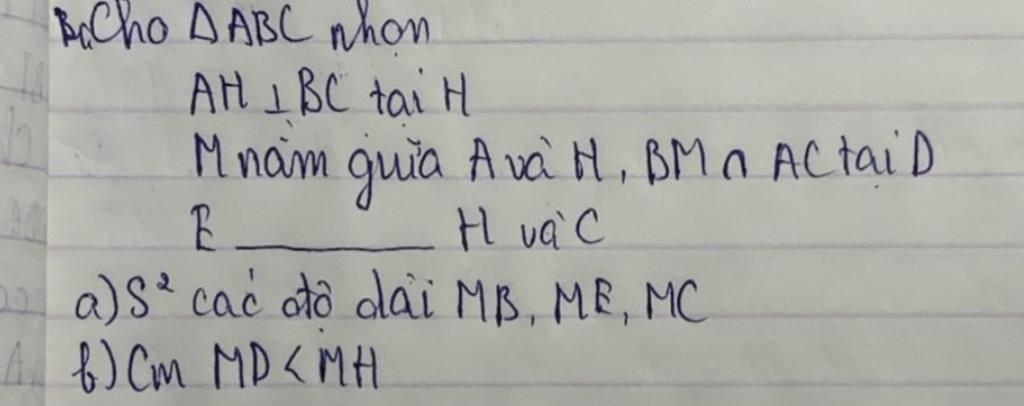 Bài Cho ΔABC nhọn
AH ⊥ BC tại H
M nằm giữa A và H, BM ∩ AC tại D
E ________ H và C
a) S² các độ dài MB, ME, MC
b) Cm MD < MH